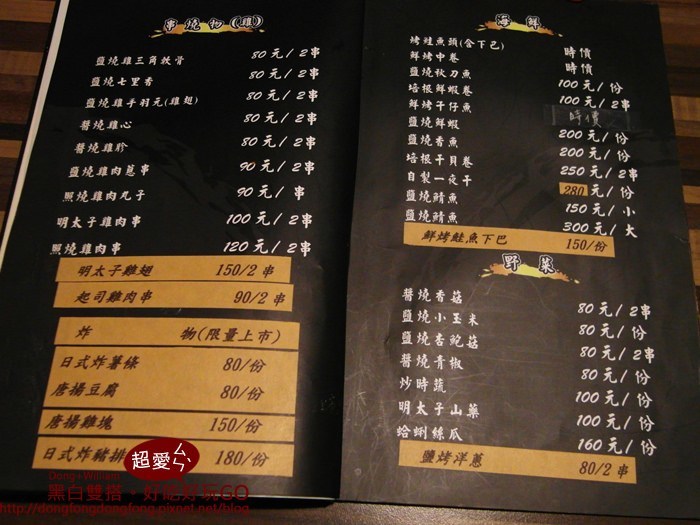 串燒物(雞)
鹽燒雞三角軟骨 80元/2串
鹽燒七里香 80元/2串
鹽燒雞手羽元(雞翅) 80元/2串
醬燒雞心 80元/2串
醬燒雞胗 80元/2串
鹽燒雞肉蔥串 90元/2串
照燒雞肉丸子 90元/串
明太子雞肉串 100元/2串
照燒雞肉串 120元/2串
明太子雞翅 150/2串
起司雞肉串 90/2串
炸 物(限量上市)
日式炸薯條 80/份
唐揚豆腐 80/份
唐揚雞塊 150/份
日式炸豬排 180/份
海鮮
烤鮭魚頭(含下巴) 時價
鮮烤中卷 時價
鹽燒秋刀魚 100元/份
培根鮮蝦卷 100元/2串
鮮烤干仔魚 時價
鹽燒鮮蝦 200元/份
鹽燒香魚 200元/份
培根干貝卷 250元/2串
自製一夜干 280元/份
鹽燒鯖魚 150元/小
鹽燒鯖魚 300元/大
鮮烤鮭魚下巴 150/份
野菜
醬燒香菇 80元/2串
鹽燒小玉米 80元/份
鹽燒杏鮑菇 80元/2串
醬燒青椒 80元/份
炒時蔬 100元/份
明太子山藥 100元/份
蛤蜊絲瓜 160元/份
鹽烤洋蔥 80/2串
超愛ㄣ
Dong+William
黑白雙搭‧好吃好玩GO
http://dongfongdongfong.pixnet.net/blog